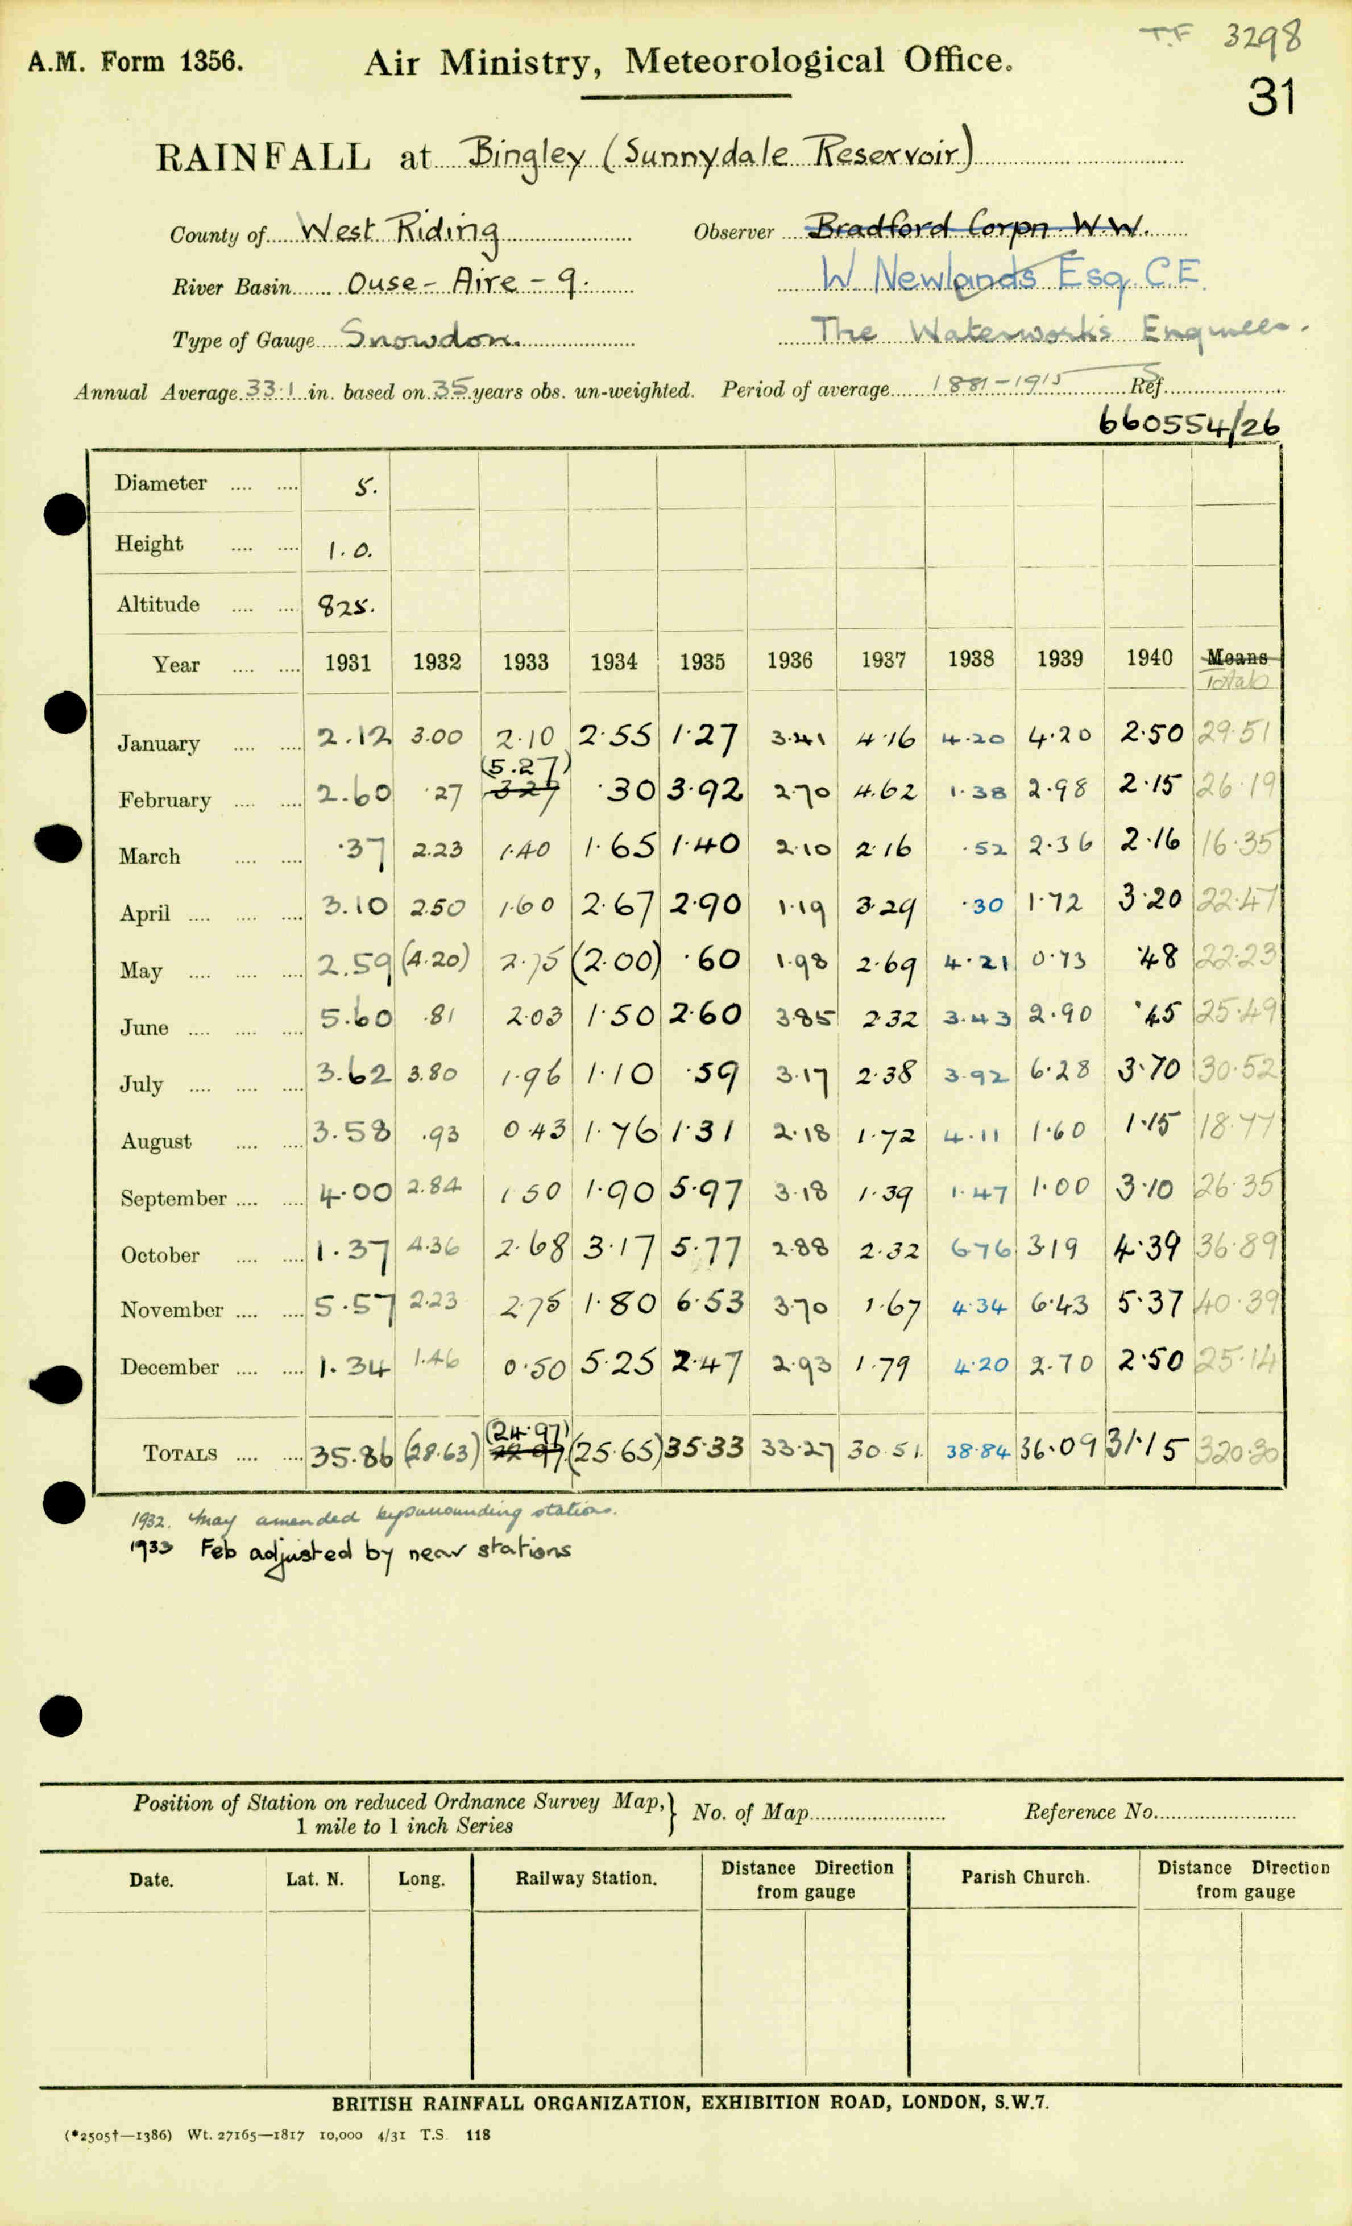 T.F 3298
A.M. Form 1356. Air Ministry, Meteorological Office.
31
RAINFALL at Bingley (Sunnydale Reservoir)
County of West Riding Observer Bradford Corpn W.W.
River Basin Ouse - Aire - 9. W Newlands Esq. C.E.
Type of Gauge Snowdon. The Waterworks Engineer.
Annual Average 33.1 in. based on 35 years obs. un-weighted. Period of average 1881-1915 Ref.
660554/26
Diameter 5.
Height 1.0.
Altitude 825.
Year 1931 1932 1933 1934 1935 1936 1937 1938 1939 1940 Means
Totals
January 2.12 3.00 2.10 2.55 1.27 3.41 4.16 4.20 4.20 2.50 29.51
(5.27)
February 2.60 .27 3.27 .30 3.92 2.70 4.62 1.38 2.98 2.15 26.19
March .37 2.23 1.40 1.65 1.40 2.10 2.16 .52 2.36 2.16 16.35
April 3.10 2.50 1.60 2.67 2.90 1.19 3.29 .30 1.72 3.20 22.47
May 2.59 (4.20) 2.75 (2.00) .60 1.98 2.69 4.21 0.73 .48 22.23
June 5.60 .81 2.03 1.50 2.60 3.85 2.32 3.43 2.90 .45 25.49
July 3.62 3.80 1.96 1.10 .59 3.17 2.38 3.92 6.28 3.70 30.52
August 3.58 .93 0.43 1.76 1.31 2.18 1.72 4.11 1.60 1.15 18.77
September 4.00 2.84 1.50 1.90 5.97 3.18 1.39 1.47 1.00 3.10 26.35
October 1.37 4.36 2.68 3.17 5.77 2.88 2.32 6.76 3.19 4.39 36.89
November 5.57 2.23 2.75 1.80 6.53 3.70 1.67 4.34 6.43 5.37 40.39
December 1.34 1.46 0.50 5.25 2.47 2.93 1.79 4.20 2.70 2.50 25.14
(24.97)
TOTALS 35.86 (28.63) 22.97 (25.65) 35.33 33.27 30.51 38.84 36.09 31.15 320.30
1932. May amended by surrounding stations.
1933 Feb adjusted by near stations
Position of Station on reduced Ordnance Survey Map, No. of Map Reference No.
1 mile to 1 inch Series
Date. Lat. N. Long. Railway Station. Distance Direction from gauge Parish Church. Distance Direction from gauge
BRITISH RAINFALL ORGANIZATION, EXHIBITION ROAD, LONDON, S.W.7.
(*2505†—1386) Wt. 27165—1817 10,000 4/31 T.S. 118